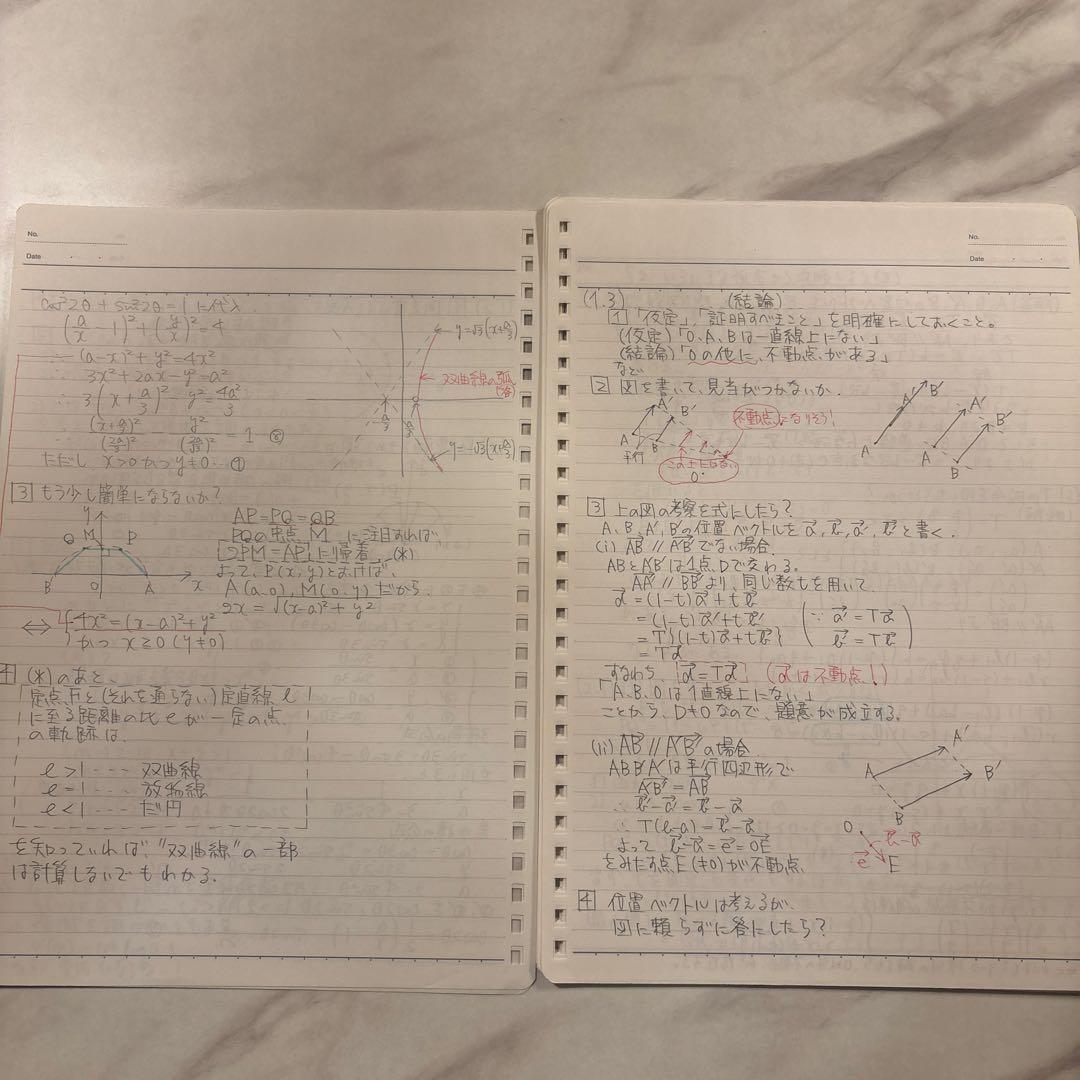 No.
Date
cos²2θ + sin²2θ = 1 に代入
(a/x - 1)² + (y/x)² = 4
∴ (a-x)² + y² = 4x²
∴ 3x² + 2ax - y² = a²
∴ 3(x + a/3)² - y² = 4a²/3
∴ (x + a/3)²/(2a/3)² - y²/(2a/√3)² = 1
ただし x>0 かつ y≠0
y=√3(x+a/3)
双曲線の弧
y=-√3(x+a/3)
3 もう少し簡単にならないか?
y
Q M P
B O A x
AP=PQ=QB
PQの中点 M に注目すれば、
「2PM=AP」に帰着 (*)
よって、P(x, y)とおけば、
A(a, 0), M(0, y) だから
2x = √(x-a)² + y²
⇔ 4x² = (x-a)² + y²
かつ x≧0 (y≠0)
4 (*) のあと、
「定点Fと(それを通らない)定直線 l
に至る距離の比 e が一定の点
の軌跡は、
e>1 ・・・ 双曲線
e=1 ・・・ 放物線
e<1 ・・・ だ円
を知っていれば、"双曲線"の一部
は計算しないでもわかる.
No.
Date
(1.3) (結論)
1 「仮定」,「証明すべきこと」を明確にしておくこと。
(仮定)「O, A, Bは一直線上にない」
(結論)「Oの他に、不動点がある」
など
2 図を書いて、見当がつかないか.
A' B' A B 平行
不動点になりそう!
この上にはない
O
A B' A' B' A B
3 上の図の考察を式にしたら?
A, B, A', B'の位置ベクトルを a, b, a', b' と書く.
(i) AB // A'B' でない場合.
ABとA'B'は1点Dで交わる.
AA' // BB' より、同じ数tを用いて.
d = (1-t)a + tb
= (1-t)a' + tb'
= T{(1-t)a + tb}
= Td
(∵ a' = Ta
b' = Tb)
すなわち、[d = Td] (dは不動点!)
「A, B, Oは1直線上にない」
ことから、D≠Oなので、題意が成立する.
(ii) AB // A'B' の場合
ABB'A'は平行四辺形で
A'B' = AB
∴ b'-a' = b-a
∴ T(b-a) = b-a
よって b-a = e = OE
をみたす点E(≠O)が不動点
A A' B B'
O b-a e E
4 位置ベクトルは考えるが、
図に頼らずに答にしたら?